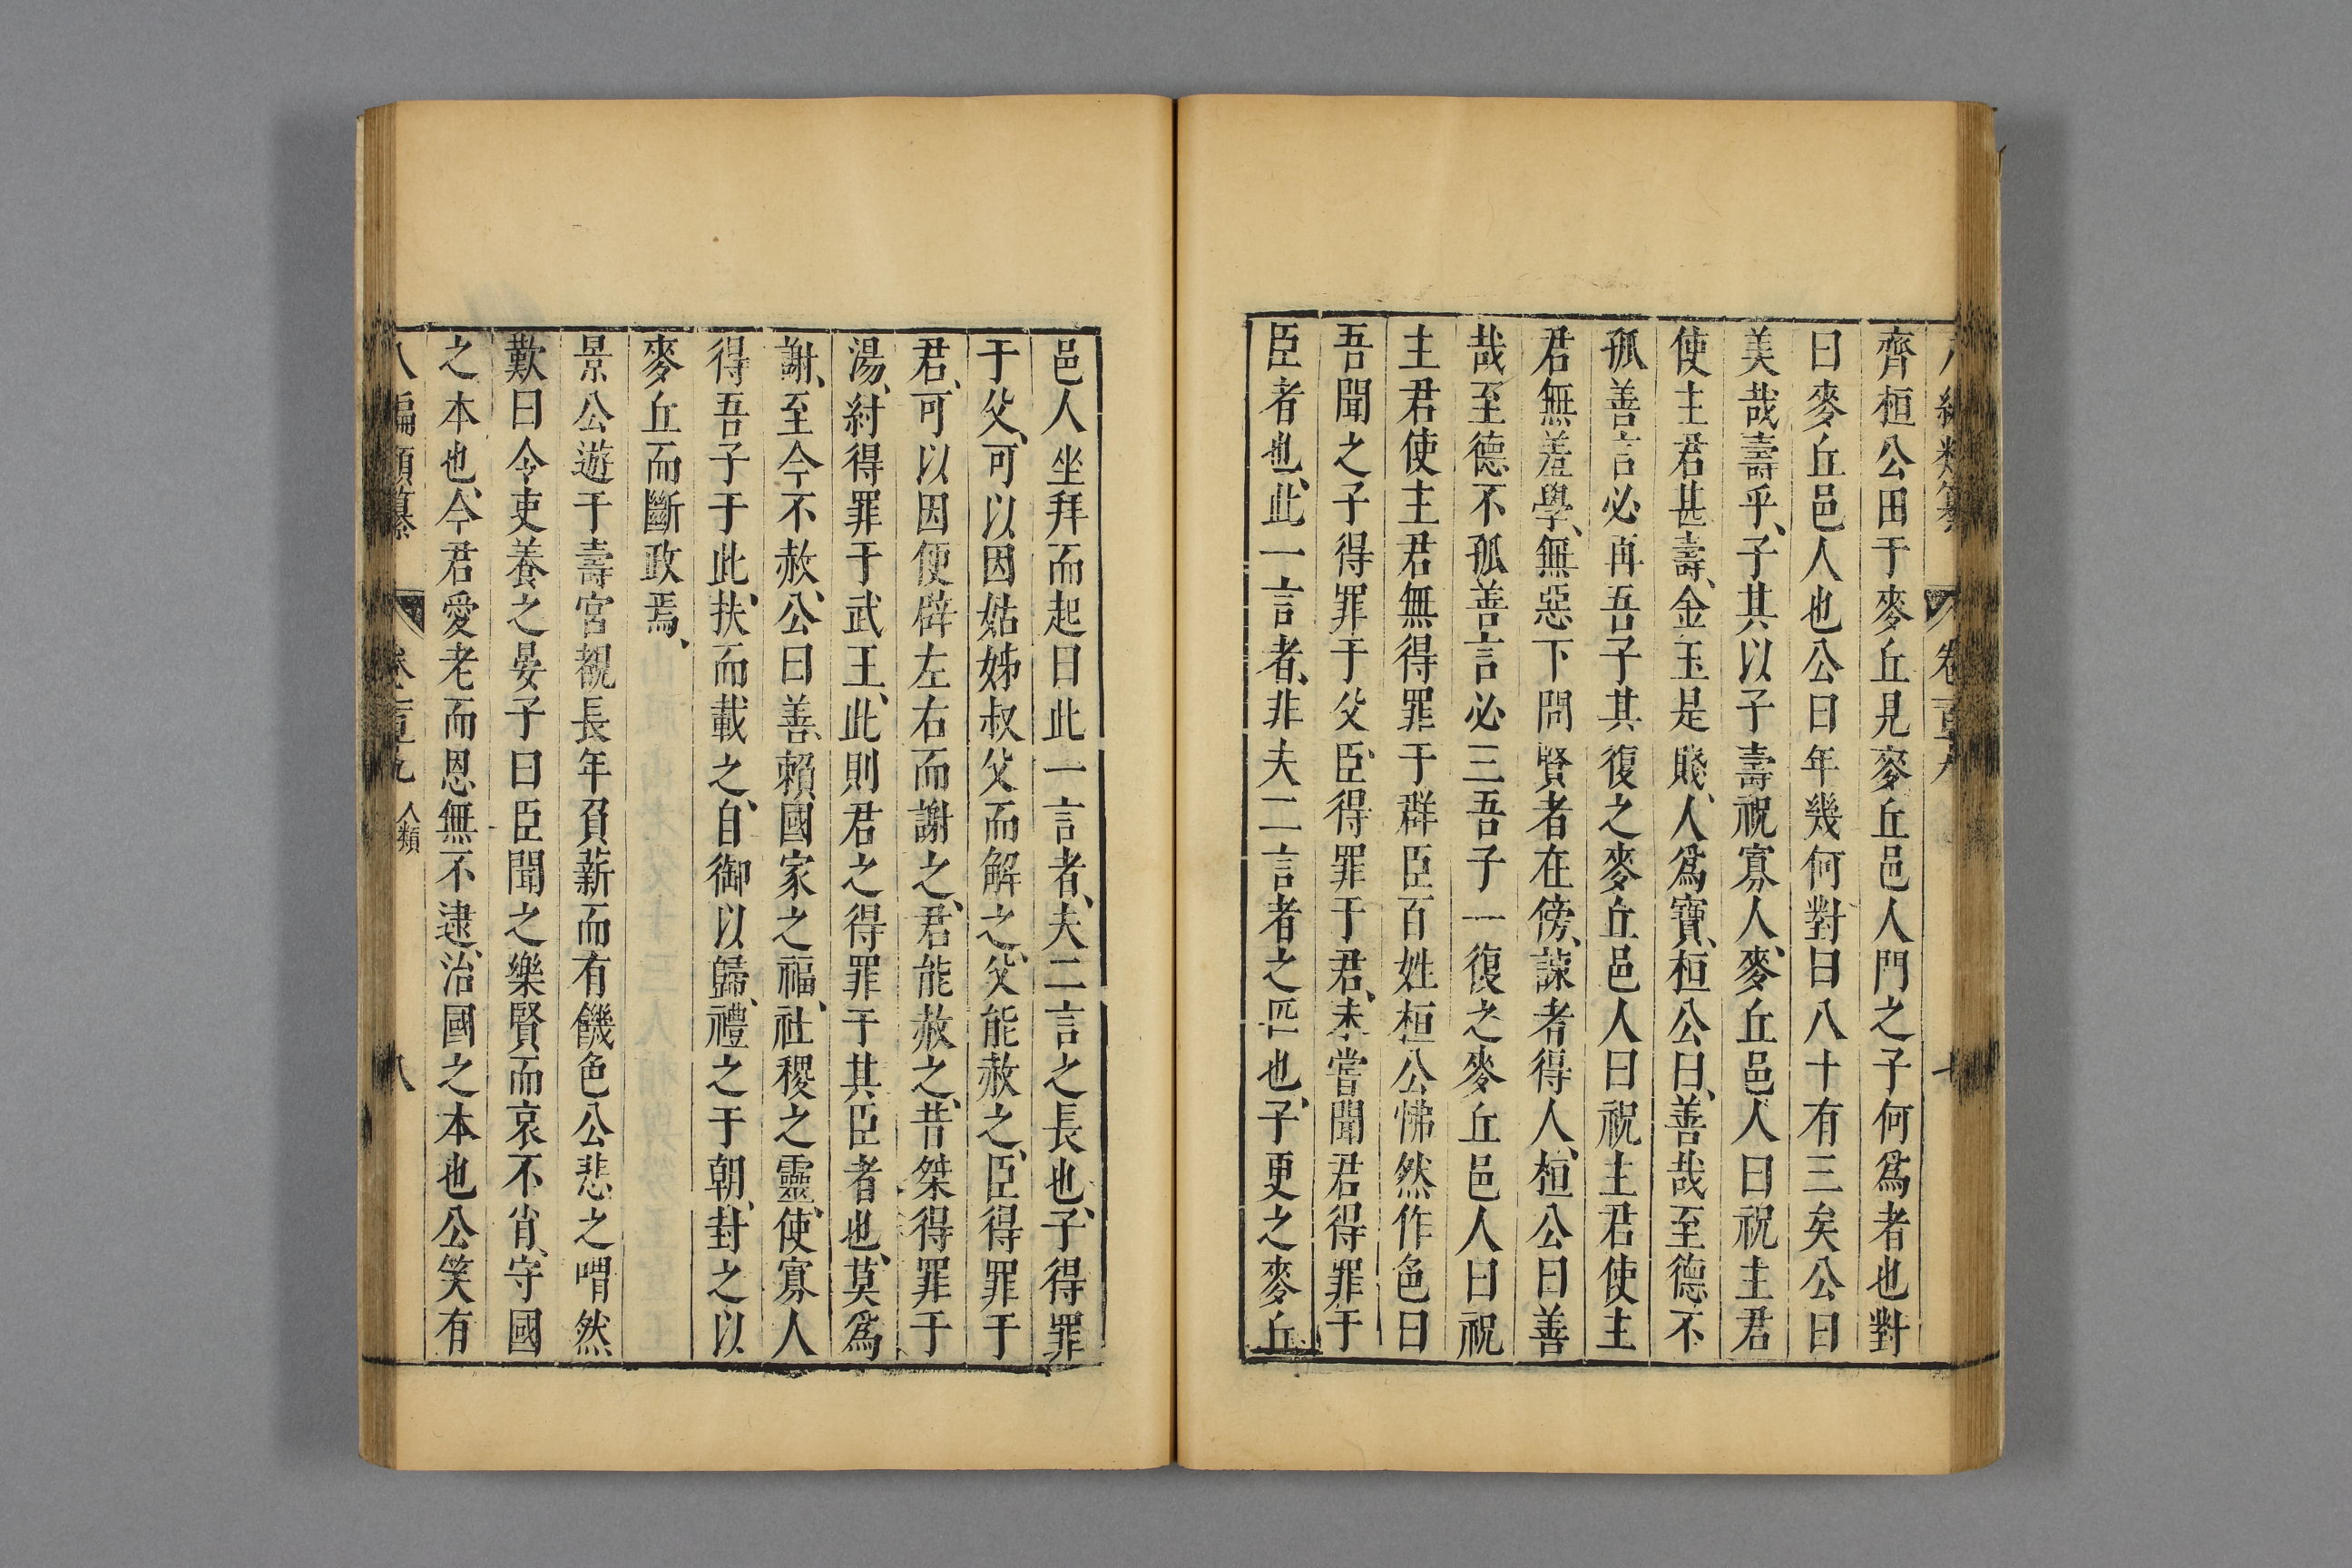 齊桓公田于麥丘見麥丘邑人問之子何爲者也對
曰麥丘邑人也公曰年幾何對曰八十有三矣公曰
美哉壽乎、子其以子壽祝寡人、麥丘邑人曰祝主君
使主君甚壽、金玉是賤、人爲寶、桓公曰、善哉至德不
孤善言必再吾子其復之麥丘邑人曰祝主君使主
君無羞學、無惡下問賢者在傍、諫者得人、桓公曰善
哉至德不孤善言必三吾子一復之麥丘邑人曰祝
主君使主君無得罪于群臣百姓桓公怫然作色曰
吾聞之子得罪于父、臣得罪于君、未嘗聞君得罪于
臣者也、此一言者、非夫二言者之匹也、子更之麥丘
邑人坐拜而起曰此一言者、夫二言之長也、子得罪
于父、可以因姑姊叔父而解之、父能赦之、臣得罪于
君、可以因便辟左右而謝之、君能赦之、昔桀得罪于
湯、紂得罪于武王、此則君之得罪于其臣者也、莫爲
謝、至今不赦、公曰善、賴國家之福、社稷之靈、使寡人
得吾子于此、扶而載之、自御以歸、禮之于朝、封之以
麥丘而斷政焉、
景公遊于壽宮覩長年負薪而有饑色公悲之喟然
歎曰令吏養之晏子曰臣聞之樂賢而哀不肖、守國
之本也、今君愛老而恩無不逮、治國之本也公笑有
八編類纂 卷一百九 人類 八